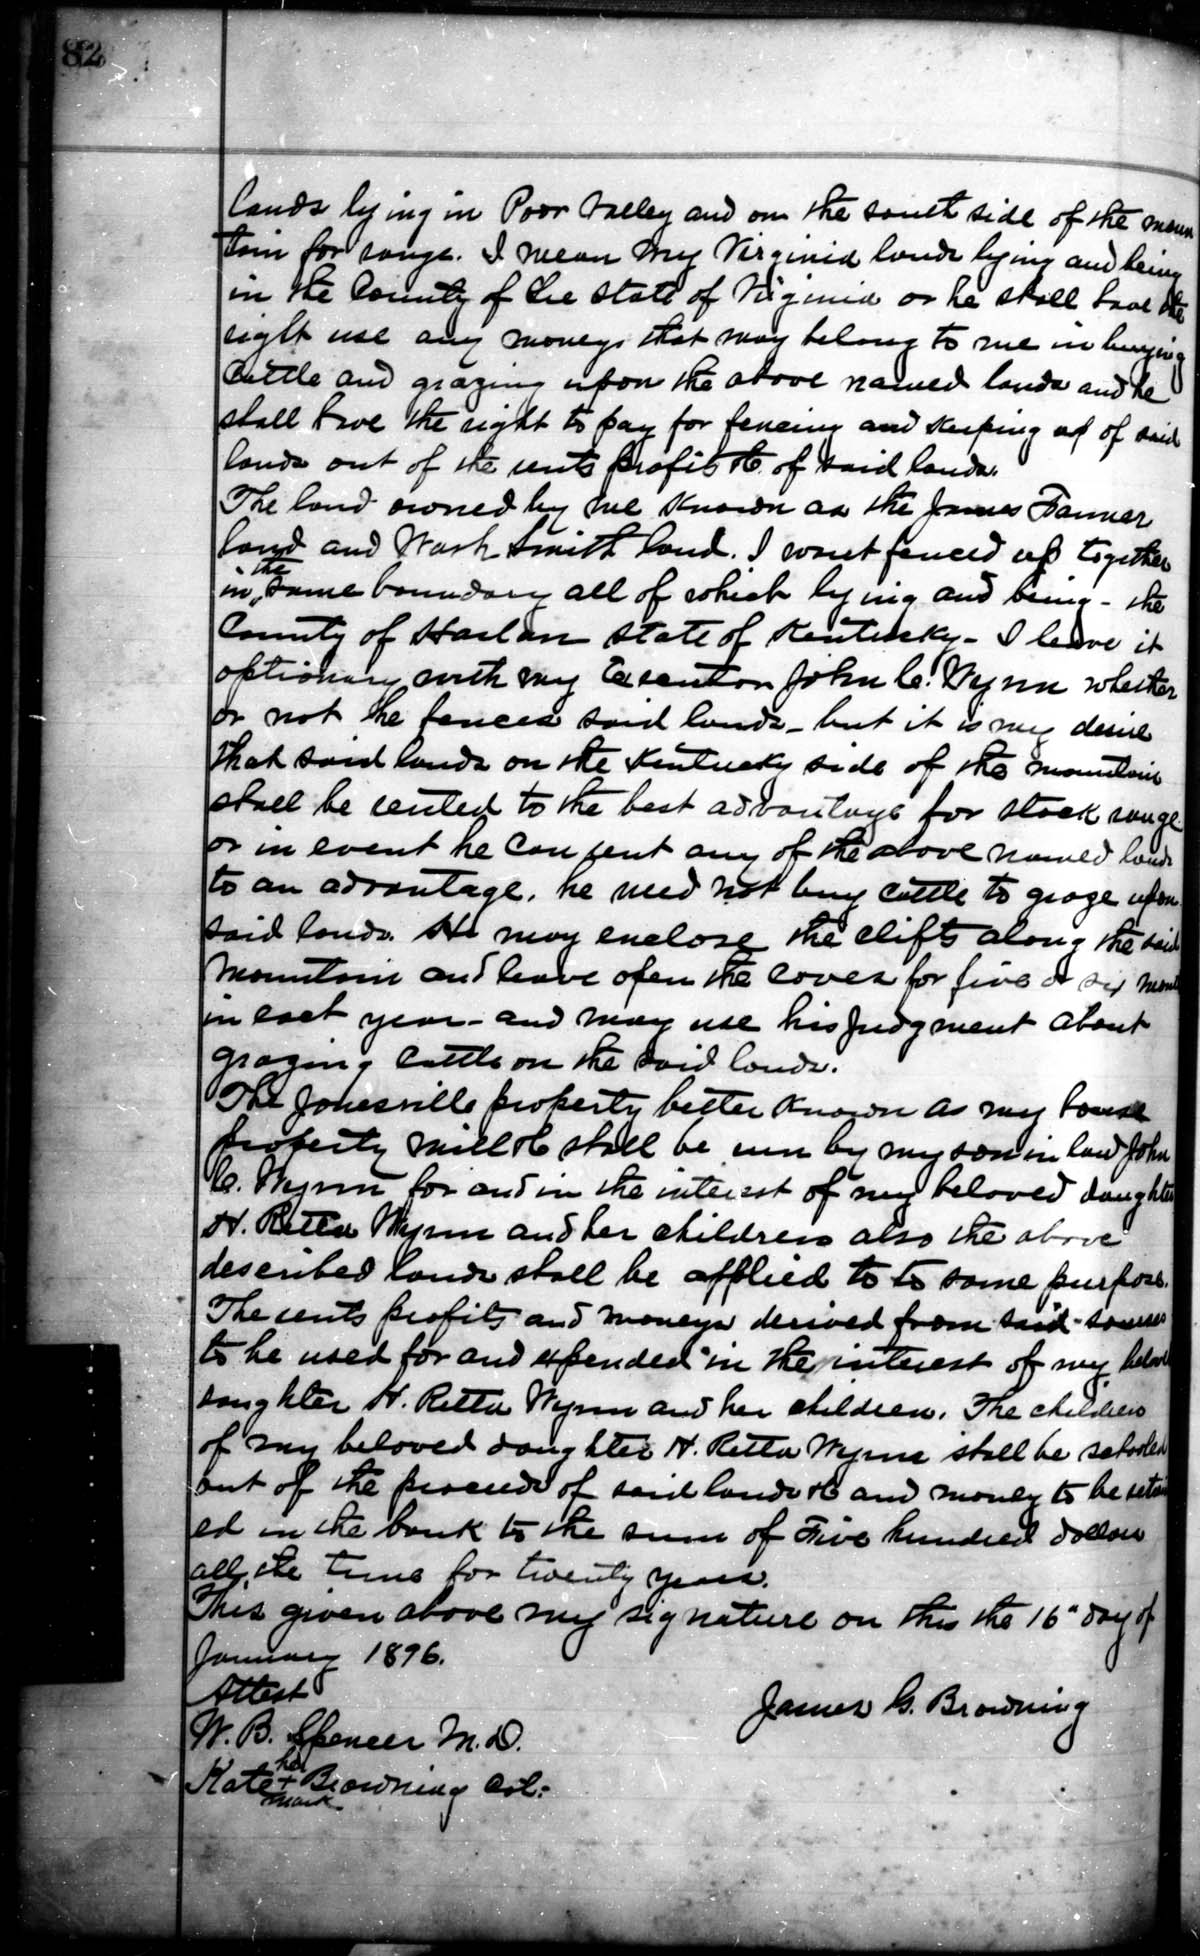 82
lands lying in Poor Valley and on the south side of the moun
tain for range. I mean my Virginia lands lying and being
in the County of Lee state of Virginia or he shall have the
right use any moneys that may belong to me in buying
Cattle and grazing upon the above named lands and he
shall have the right to pay for fencing and keeping up of said
lands out of the rents profits &c. of said lands.
The land owned by me known as the James Farmer
land and Wash Smith land. I want fenced up together
in the same boundary all of which lying and being - the
County of Harlan state of Kentucky - I leave it
optionary with my Executor John C. Wynn whether
or not he fences said lands - but it is my desire
that said lands on the Kentucky side of the mountain
shall be rented to the best advantage for stock range
or in event he can rent any of the above named lands
to an advantage, he need not buy cattle to graze upon
said lands. He may enclose the clifts along the said
mountain and leave open the coves for five or six mont
in each year - and may use his judgment about
grazing Cattle on the said lands.
The Jonesville property better known as my house
property mill &c shall be run by my son in law John
C. Wynn for and in the interest of my beloved daughter
H. Retta Wynn and her children also the above
described lands shall be applied to to same purpose.
The rents profits and moneys derived from said sourses
to be used for and expended in the interest of my belov
daughter H. Retta Wynn and her children. The children
of my beloved daughter H. Retta Wynn shall be schooled
out of the proceeds of said lands &c and money to be retain
ed in the bank to the sum of Five hundred dollars
all the time for twenty years.
This given above my signature on this the 16" day of
January 1896.
Attest
James G. Browning
W. B. Spencer M.D.
her
Kate + Browning Col.
mark